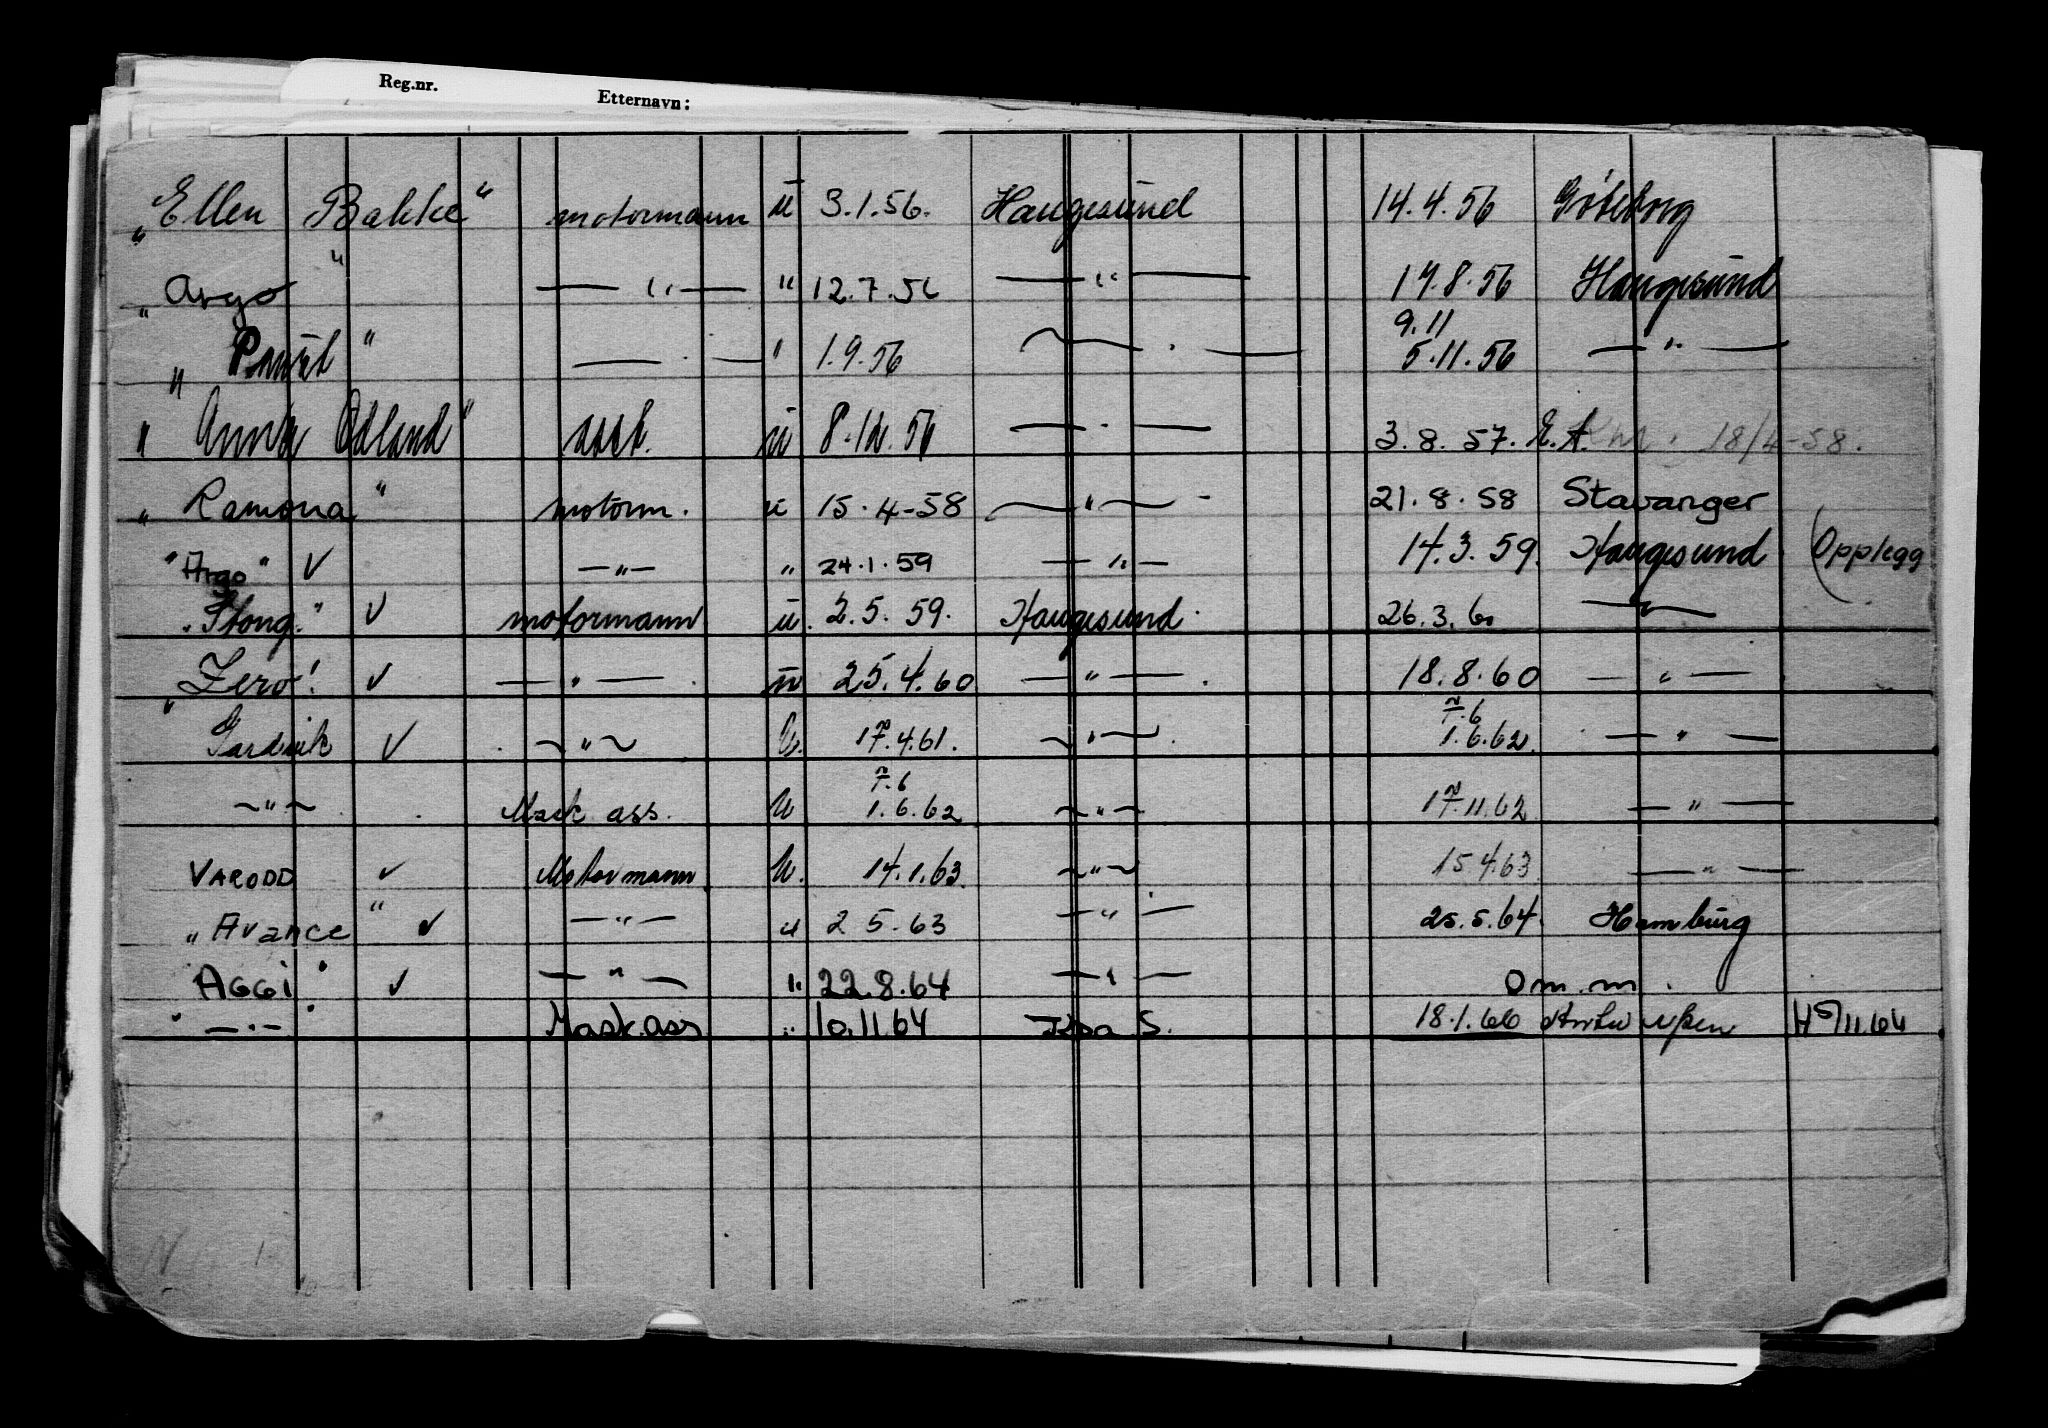 Reg.nr. Etternavn:
„Ellen Bakke" motormann u 3.1.56. Haugesund 14.4.56 Göteborg
„Argo" — " — " 12.7.56 — " — 17.8.56 Haugesund
9.11
„ " — " — " 1.9.56 — " — 5.11.56 — " —
„Anna Odland" asst. u 8.12.56 — " — 3.8.57. E.A. Km. 18/4-58.
„Ramona" motorm. u 15.4-58 — " — 21.8.58 Stavanger
"Argo" ✓ — " — " 24.1.59 — " — 14.3.59. Haugesund (Opplegg
„Stong" ✓ motormann u. 2.5.59. Haugesund. 26.3.60 — " —
„Zero" ✓ — " — u 25.4.60 — " — 18.8.60 — " —
7.6
Gardvik ✓ — " — U. 17.4.61. — " — 1.6.62 — " —
7.6
— " — Mask ass. U 1.6.62 — " — 17.11.62 — " —
VARODD ✓ Motormann U. 14.1.63. — " — 15.4.63 — " —
„Avance" ✓ — " — u 2 5.63 — " — 25.5.64. Hamburg
"AGGI" ✓ — " — " 22.8.64 — " — Om.m.
" — " — " Mask.ass " 10.11.64 S. 18.1.66 Antwerpen H 5/11.64